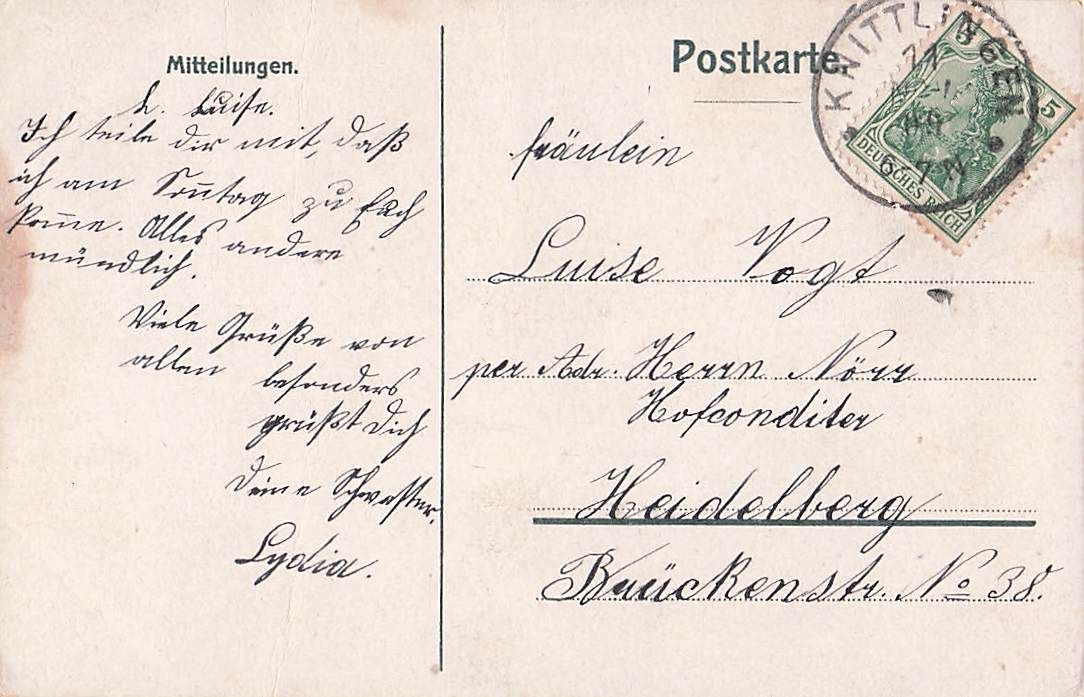 Mitteilungen.
L. Luise.
Ich teile dir mit, daß
ich am Sonntag zu Euch
kom̅e. Alles andere
mündlich.
Viele Grüße von
allen besonders
grüßt Dich
Deine Schwester.
Lydia.
Postkarte.
KNITTLINGEN
5
5
DEUTSCHES REICH
fräulein
Luise Vogt
per Adr. Herrn Nörr
Hofconditer
Heidelberg
Brückenstr. No 38.